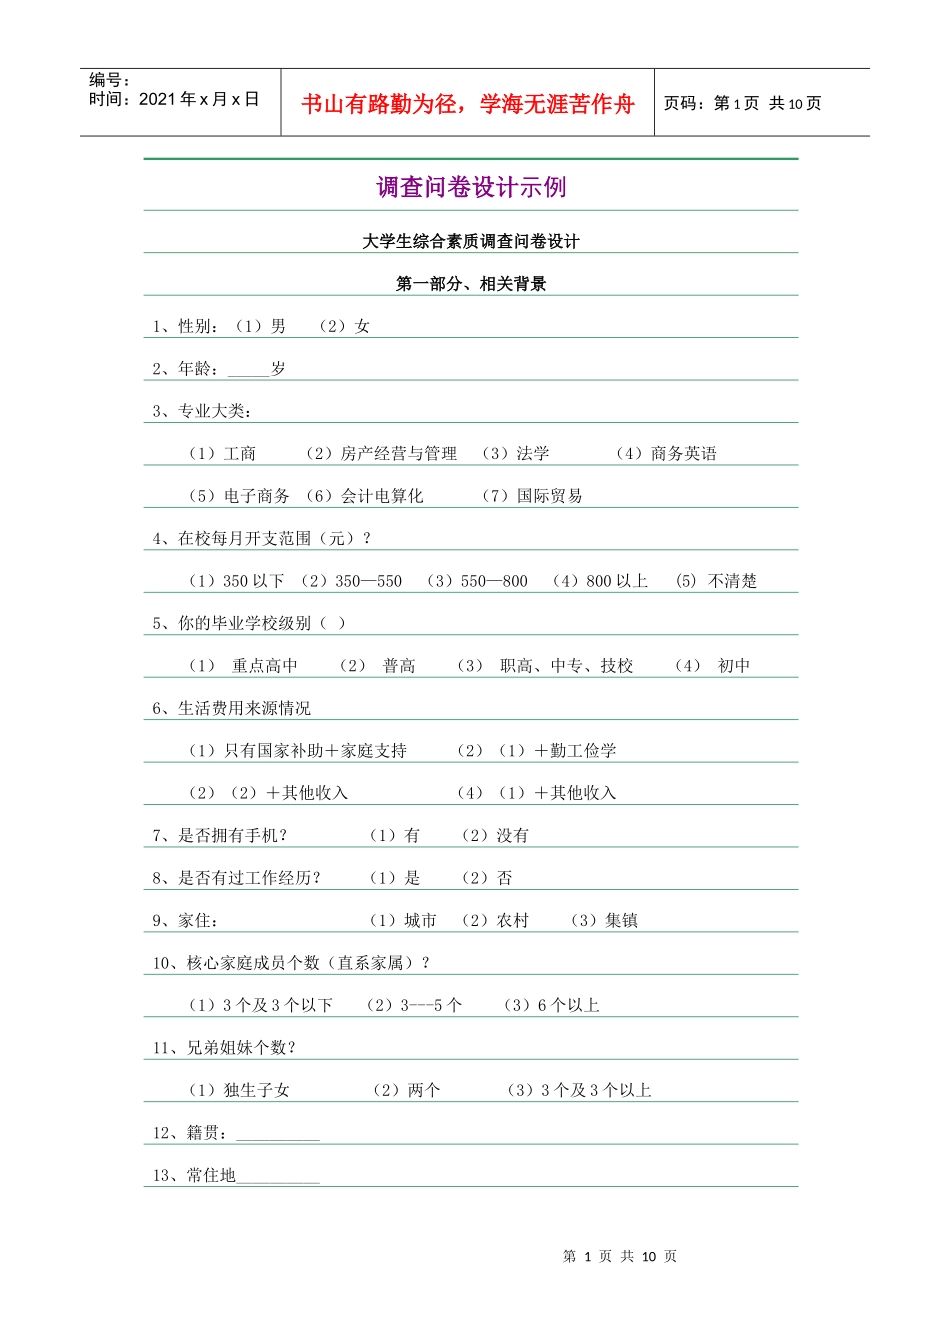 编号：
时间：2021年x月x日
书山有路勤为径，学海无涯苦作舟
页码：第1页 共10页
调查问卷设计示例
大学生综合素质调查问卷设计
第一部分、相关背景
1、性别：（1）男 （2）女
2、年龄：_____岁
3、专业大类：
（1）工商 （2）房产经营与管理 （3）法学 （4）商务英语
（5）电子商务 （6）会计电算化 （7）国际贸易
4、在校每月开支范围（元）？
（1）350以下 （2）350—550 （3）550—800 （4）800以上 （5) 不清楚
5、你的毕业学校级别（ ）
（1） 重点高中 （2） 普高 （3） 职高、中专、技校 （4） 初中
6、生活费用来源情况
（1）只有国家补助＋家庭支持 （2）（1）＋勤工俭学
（2）（2）＋其他收入 （4）（1）＋其他收入
7、是否拥有手机？ （1）有 （2）没有
8、是否有过工作经历？ （1）是 （2）否
9、家住： （1）城市 （2）农村 （3）集镇
10、核心家庭成员个数（直系家属）？
（1）3个及3个以下 （2）3---5个 （3）6个以上
11、兄弟姐妹个数？
（1）独生子女 （2）两个 （3）3个及3个以上
12、籍贯：__________
13、常住地__________
第 1 页 共 10 页